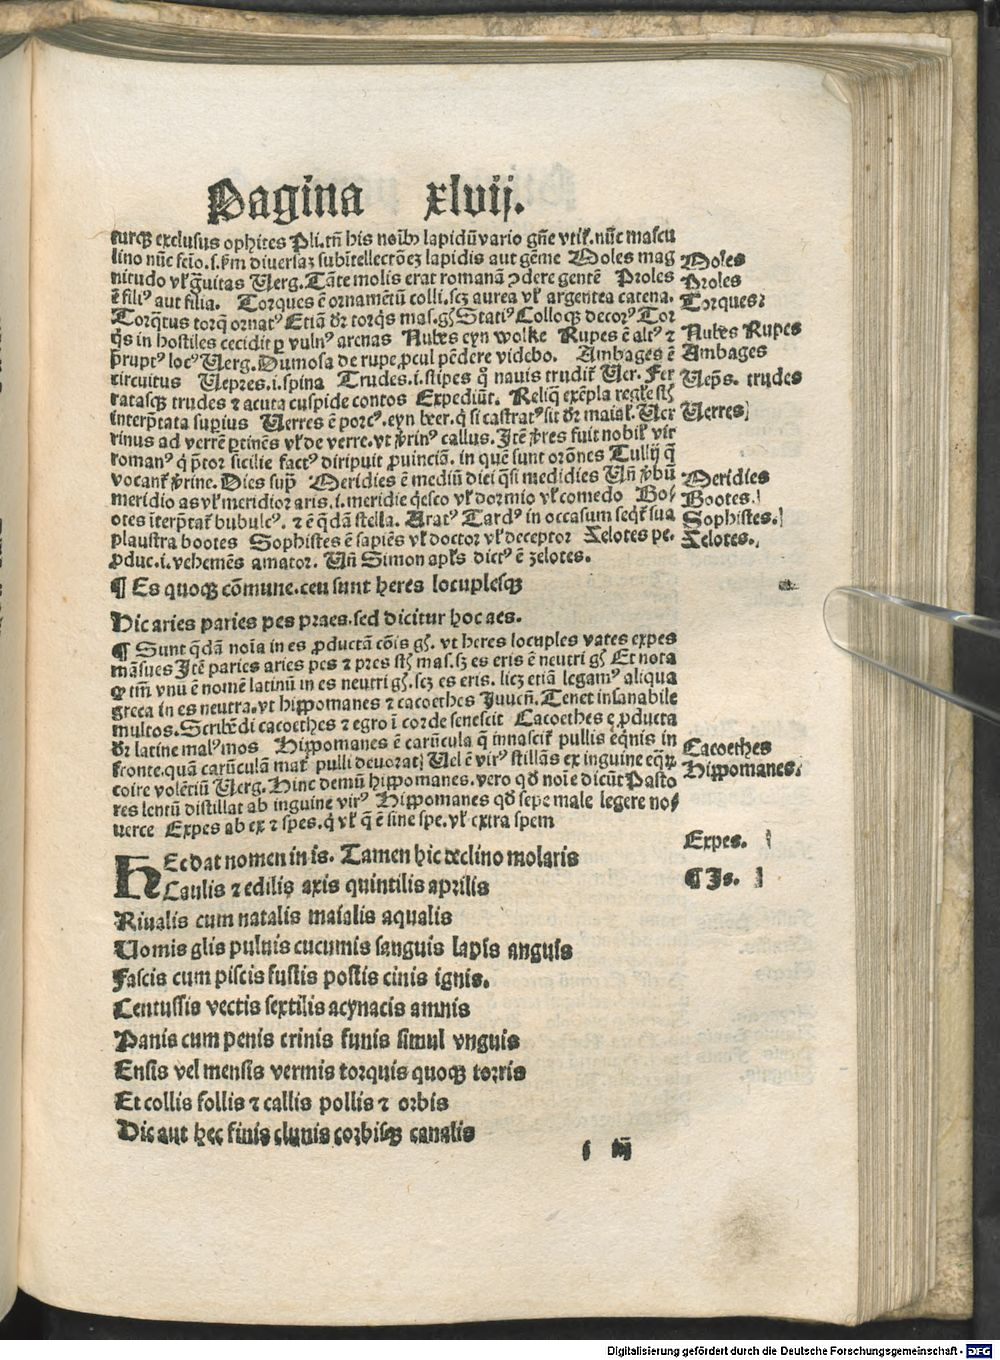 Pagina xlvij.
turqꝫ exclusus ophites Pli. tñ his noib⁹ lapidũ vario gñe vtit̃. nũc mascu
lino nũc feīo. s. Moles mag
nitudo vł g̃uitas Uerg. Tãte molis erat romanã ↄdere gentẽ Proles
ẽ fili⁹ aut filia. Torques ẽ ornamẽtũ colli. scꝫ aurea vł argentea catena.
Torq̃tus torq̃ ornat⁹ Etiã dr̃ torq̃s mas. gñ Stati⁹ Colloqꝫ decor⁹ Tor
q̃s in hostiles cecidit ꝑ vuln⁹ arenas Nubes eyn wolke Rupes ẽ alt⁹ ⁊
p̃rupt⁹ loc⁹ Uerg. Dumosa de rupe ꝓcul pẽdere videbo. Ambages ẽ
circuitus Uepres .i. spina Trudes .i. stipes q̊ nauis trudit̃ Uer. Fer
ratasqꝫ trudes ⁊ acuta cuspide contos Expediũt. Reliq̃ exẽpla
interp̃tata supius Uerres ẽ porc⁹. eyn beer. q̃ si castrat⁹ sit dr̃ maial̃. Uer
rinus ad verrẽ ꝑtinẽs vł de verre. vt callus. Itẽ fuit nobił vir
roman⁹ q̃ p̃tor sicilie fact⁹ diripuit ꝓuinciã. in quẽ sunt orõnes Tullij q̃
vocant̃ Dies sup̃ Meridies ẽ mediũ diei q̃si medidies Uñ
meridio as vł meridior aris .i. meridie q̃esco vł dormio vł comedo Bo⸗
otes ĩterp̃tat̃ bubulc⁹. ⁊ ẽ q̃dã stella. Arat⁹ Tard⁹ in occasum seqt̃ sua
plaustra bootes Sophistes ẽ sapiẽs vł doctor vł deceptor Zelotes pe.
ꝓduc .i. vehemẽs amator. Uñ Simon apłs dict⁹ ẽ zelotes.
¶ Es quoqꝫ cõmune. ceu sunt heres locuplesqꝫ
Hic aries paries pes praes. sed dicitur hoc aes.
¶ Sunt q̃dã noĩa in es ꝓductã cõis gñ. vt heres locuples vates expes
mãsues Itẽ paries aries pes ⁊ pres mas. sꝫ es eris ẽ neutri gñ Et nota
ꝙ tm̃ vnũ ẽ nomẽ latinũ in es neutri gñ. scꝫ es eris. licꝫ etiã legam⁹ aliqua
greca in es neutra. vt hippomanes ⁊ cacoethes Juuen̄. Tenet insanabile
multos. Scribẽdi cacoethes ⁊ egro ĩ corde senescit Cacoethes ę ꝓducta
dr̃ latine mal⁹ mos Hippomanes ẽ carũcula q̃ innascit̃ pullis eq̃nis in
fronte. quã carũculã mat̃ pulli deuorat Uel ẽ vir⁹ stillãs ex inguine eq̃ꝝ
coire volẽtiũ Uerg. Hinc demũ hippomanes. vero qđ noĩe dicũt Pasto
res lentũ distillat ab inguine vir⁹ Hippomanes qđ sepe male legere no⸗
uerce Expes ab ex ⁊ spes. q̃ vł q̃ ẽ sine spe. vł extra spem
HEc dat nomen in is. Tamen hic declino molaris
Caulis ⁊ edilis axis quintilis aprilis
Riualis cum natalis maialis aqualis
Uomis glis puluis cucumis sanguis lapis anguis
Fascis cum piscis fustis postis cinis ignis.
Centussis vectis sextilis acynacis amnis
Panis cum penis crinis funis simul vnguis
Ensis vel mensis vermis torquis quoqꝫ torris
Et collis follis ⁊ callis pollis ⁊ orbis
Dic aut hec finis clunis corbisqꝫ canalis
Moles
Proles
Torques
Nubes Rupes
Ambages
Uep̃s. trudes
Uerres
Meridies
Bootes.
Sophistes.
Zelotes.
Cacoethes
Hippomanes.
Expes.
¶ Is.
Digitalisierung gefördert durch die Deutsche Forschungsgemeinschaft - DFG